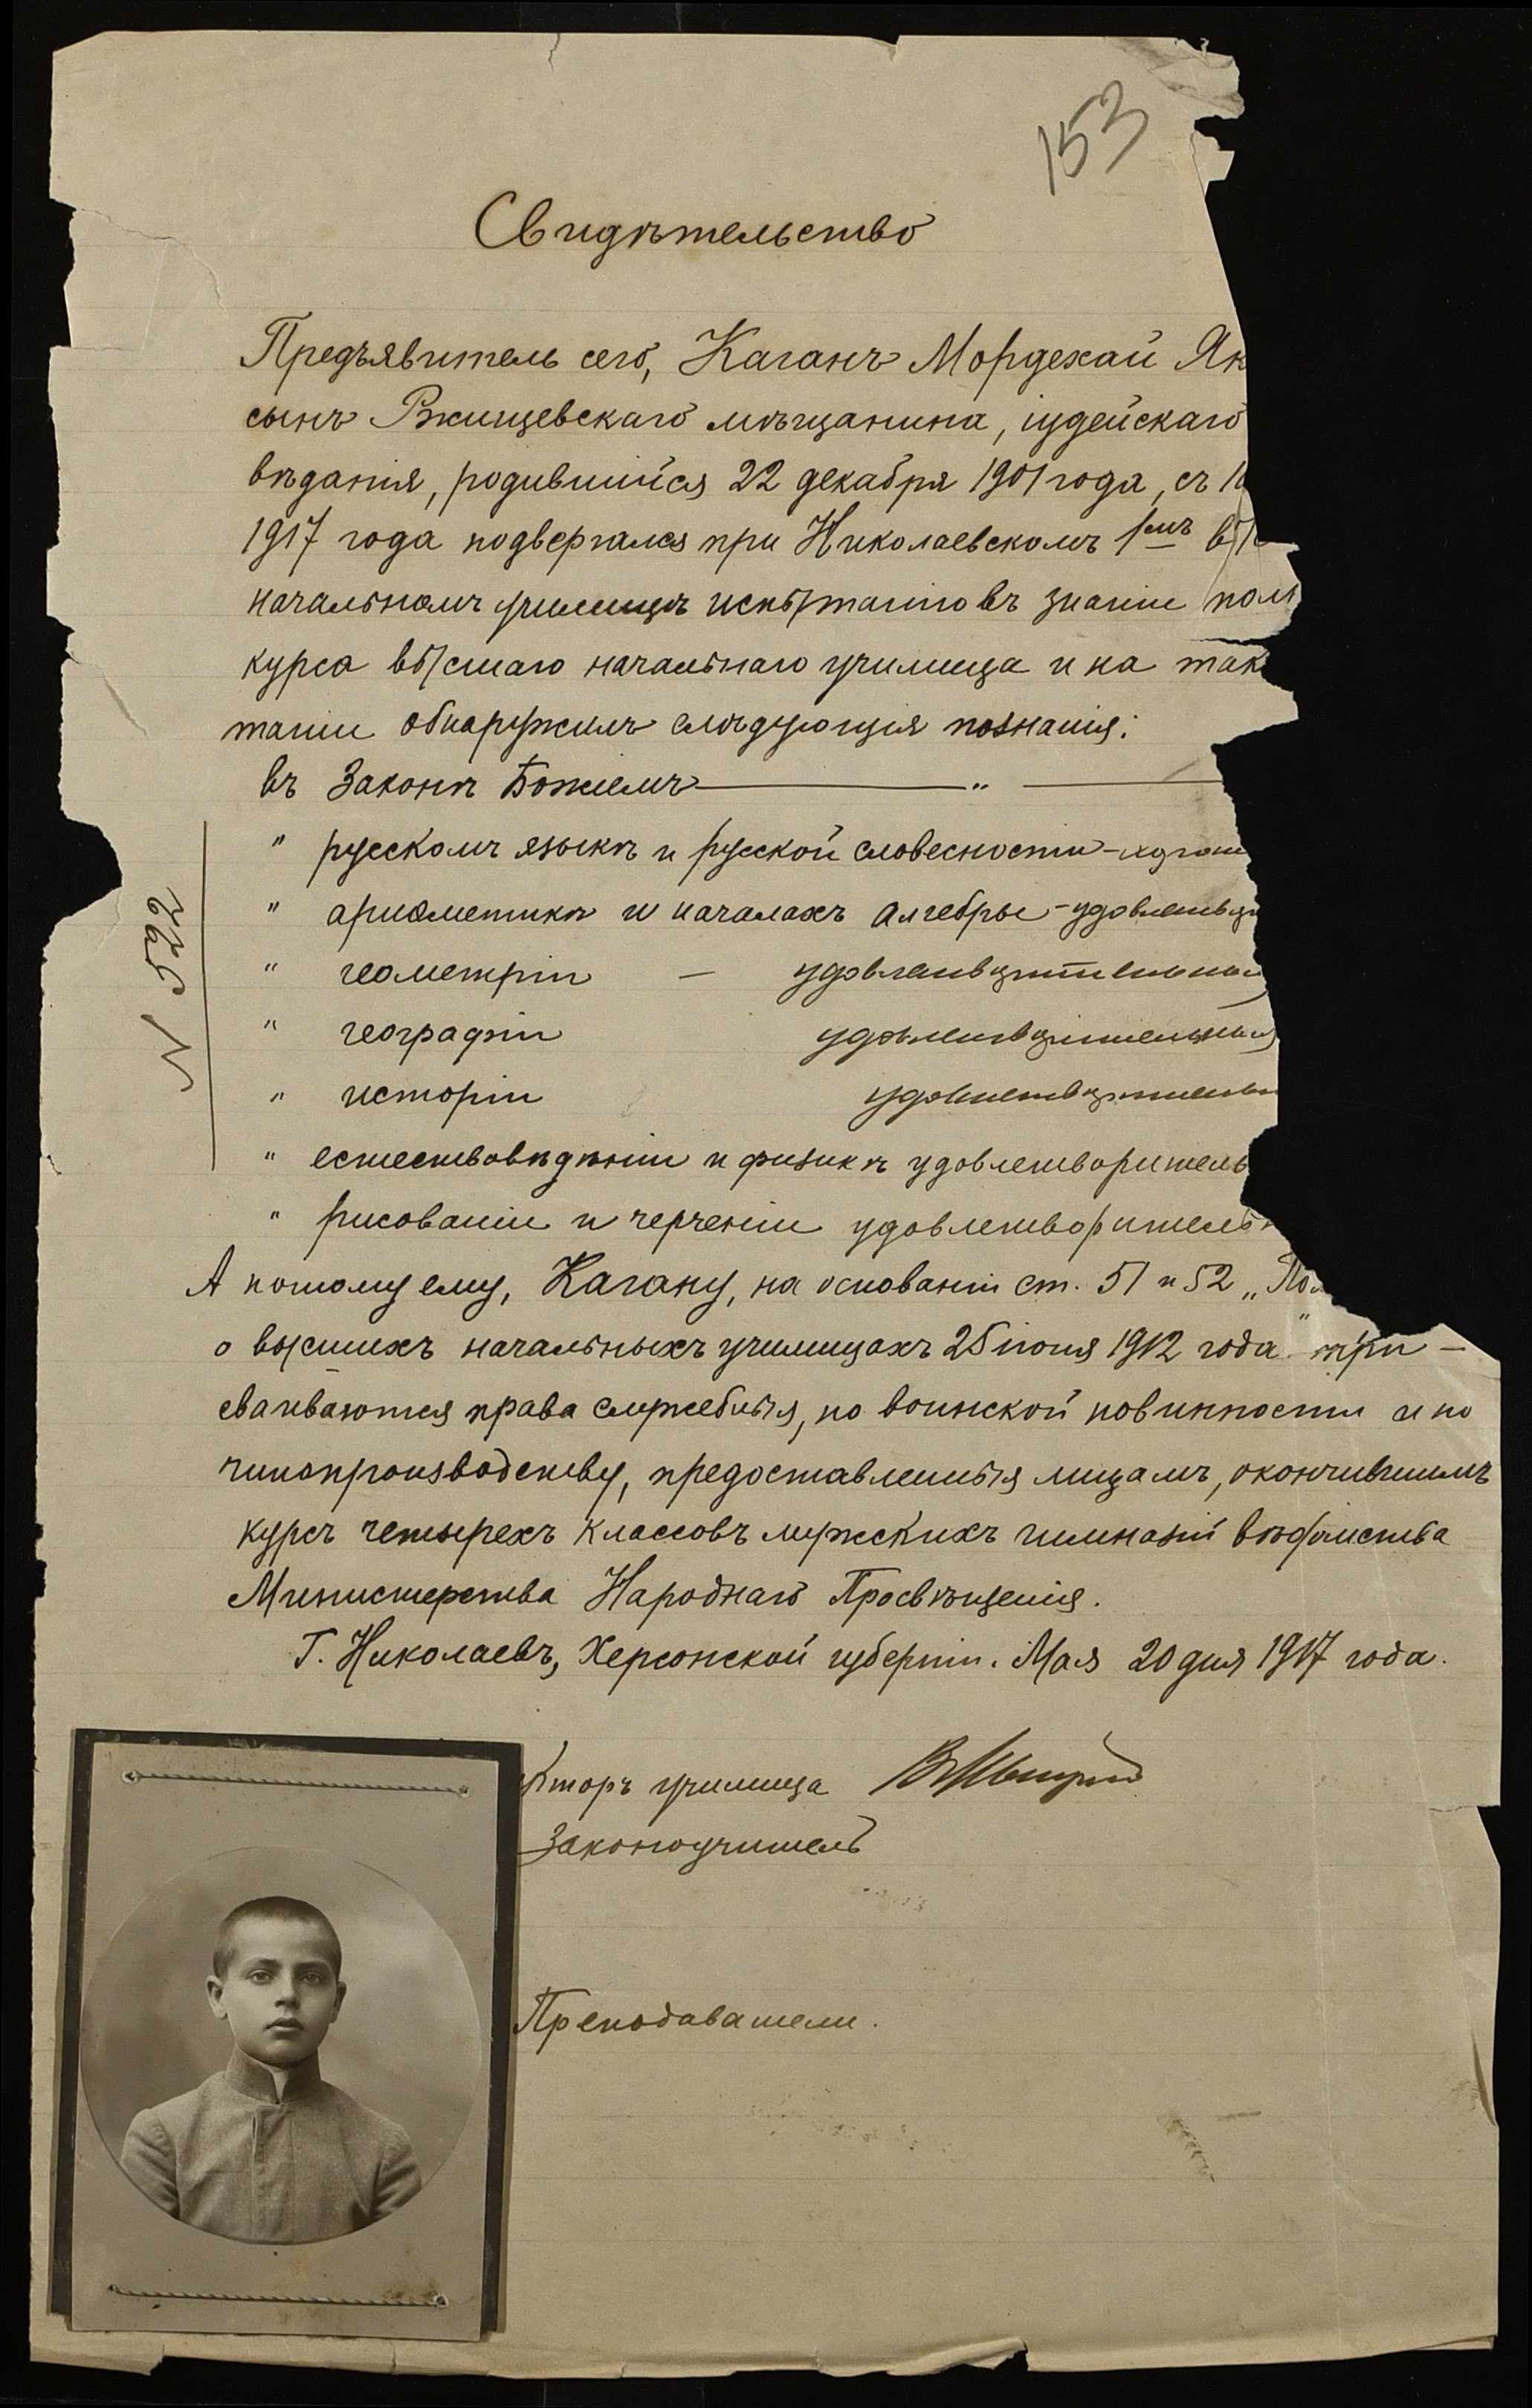 153
Свидѣтельство
Предъявитель сего, Каганъ Мордехай Як
сынъ Ржищевскаго мѣщанина, іудейскаго
вѣданія, родившійся 22 декабря 1901 года, съ
1917 года подвергался при Николаевскомъ 1мъ вы
начальномъ училищѣ испытанію въ знаніи пол
курса высшаго начальнаго училища и на так
таніи обнаружилъ слѣдующія познанія:
въ Законѣ Божіемъ — " —
" русскомъ языкѣ и русской словесности - хорош
" ариѳметикѣ и началахъ алгебры - удовлетво
" геометріи — удовлетворительныя
" географіи удовлетворительныя
" исторіи удовлетворительн
" естествовѣдѣніи и физикѣ удовлетворитель
" рисованіи и черченіи удовлетворительн
N 522
А потому ему, Кагану, на основаніи ст. 51 и 52 „Пол
о высшихъ начальныхъ училищахъ 25 іюня 1912 года" при-
сваиваются права служебныя, по воинской повинности и по
чинопроизводству, предоставленныя лицамъ, окончившимъ
курсъ четырехъ классовъ мужскихъ гимназій вѣдомства
Министерства Народнаго Просвѣщенія.
Г. Николаевъ, Херсонской губерніи. Мая 20 дня 1917 года.
кторъ училища
Законоучитель
Преподаватели.